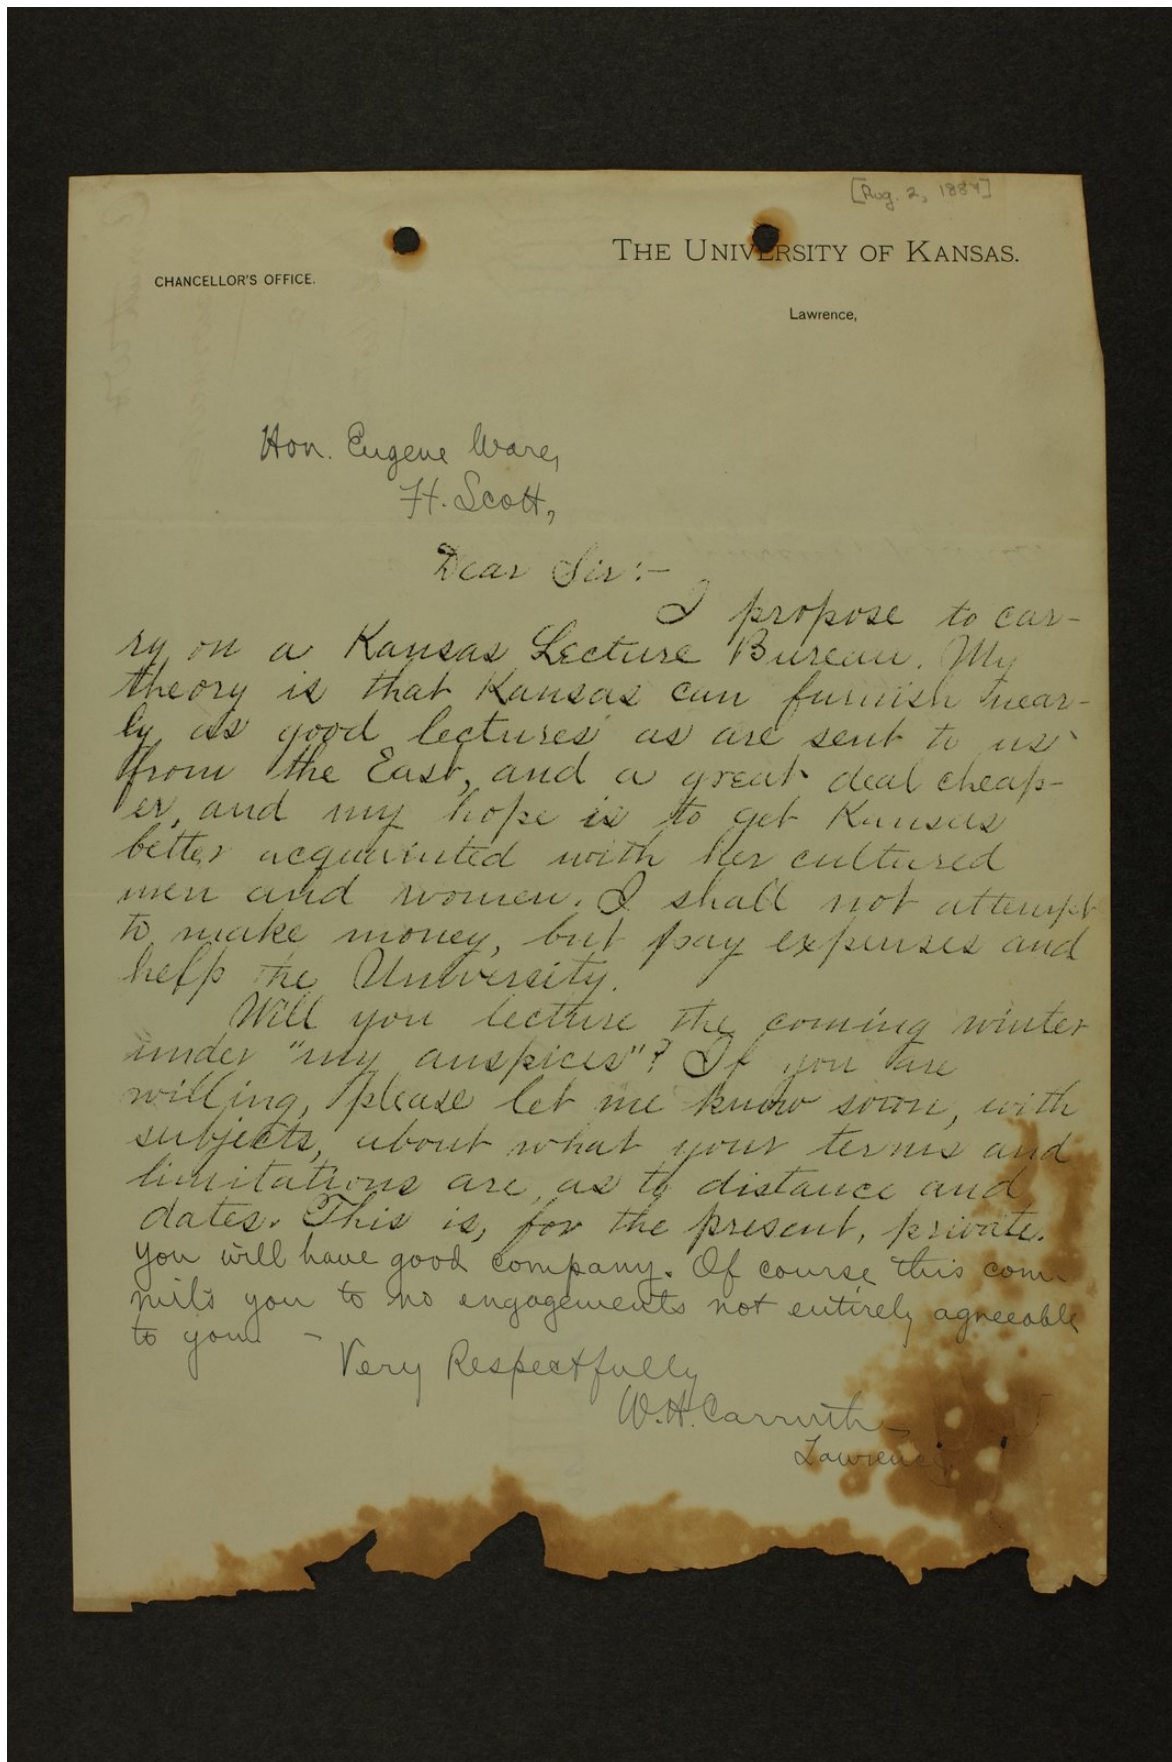 [Aug. 2, 1887]
THE UNIVERSITY OF KANSAS.
CHANCELLOR'S OFFICE.
Lawrence,
Hon. Eugene Ware,
Ft. Scott,
Dear Sir:-
I propose to car-
ry on a Kansas Lecture Bureau. My
theory is that Kansas can furnish near-
ly as good lectures as are sent to us
from the East, and a great deal cheap-
er, and my hope is to get Kansas
better acquainted with her cultured
men and women. I shall not attempt
to make money, but pay expenses and
help the University.
Will you lecture the coming winter
under "my auspices"? If you are
willing, please let me know soon, with
subjects, about what your terms and
limitations are, as to distance and
dates. This is, for the present, private.
You will have good company. Of course this com-
mits you to no engagements not entirely agreeable
to you. -
Very Respectfully
W. H. Carruth
Lawrence,